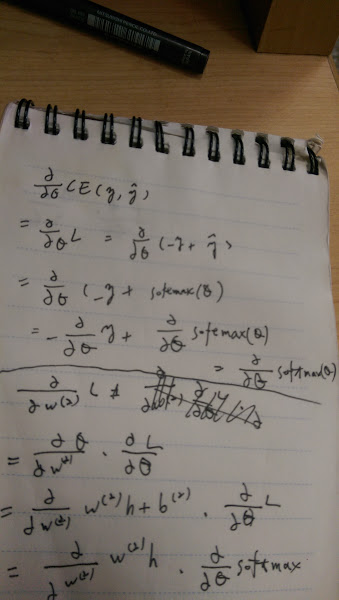 ∂/∂θ CE(y, ŷ)
= ∂/∂θ L = ∂/∂θ (-y + ŷ)
= ∂/∂θ (-y + softmax(θ)
= - ∂/∂θ y + ∂/∂θ softmax(θ)
= ∂/∂θ softmax(θ)
∂/∂w⁽²⁾ L
= ∂θ/∂w⁽²⁾ · ∂L/∂θ
= ∂/∂w⁽²⁾ w⁽²⁾h + b⁽²⁾ · ∂/∂θ L
= ∂/∂w⁽²⁾ w⁽²⁾h · ∂/∂θ softmax